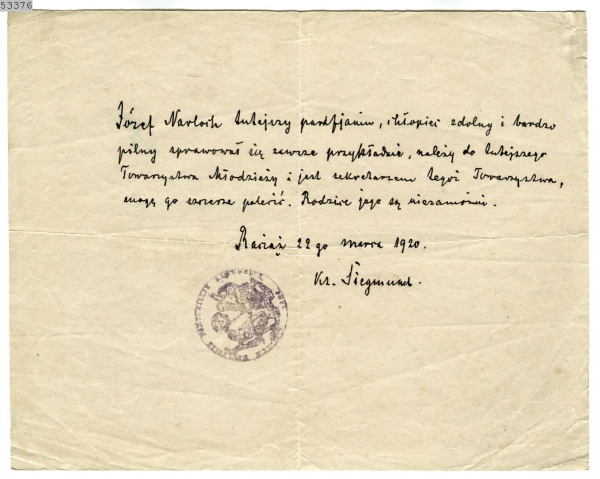 53376
Józef Narloch tutejszy parafjanin, chłopiec zdolny i bardzo
pilny sprawował się zawsze przykładnie, należy do tutejszego
Towarzystwa Młodzieży i jest sekretarzem tegoż Towarzystwa,
mogę go szczerze polecić. Rodzice jego są niezamożni.
Raciąż 22 go marca 1920.
Ks. Siegmund.